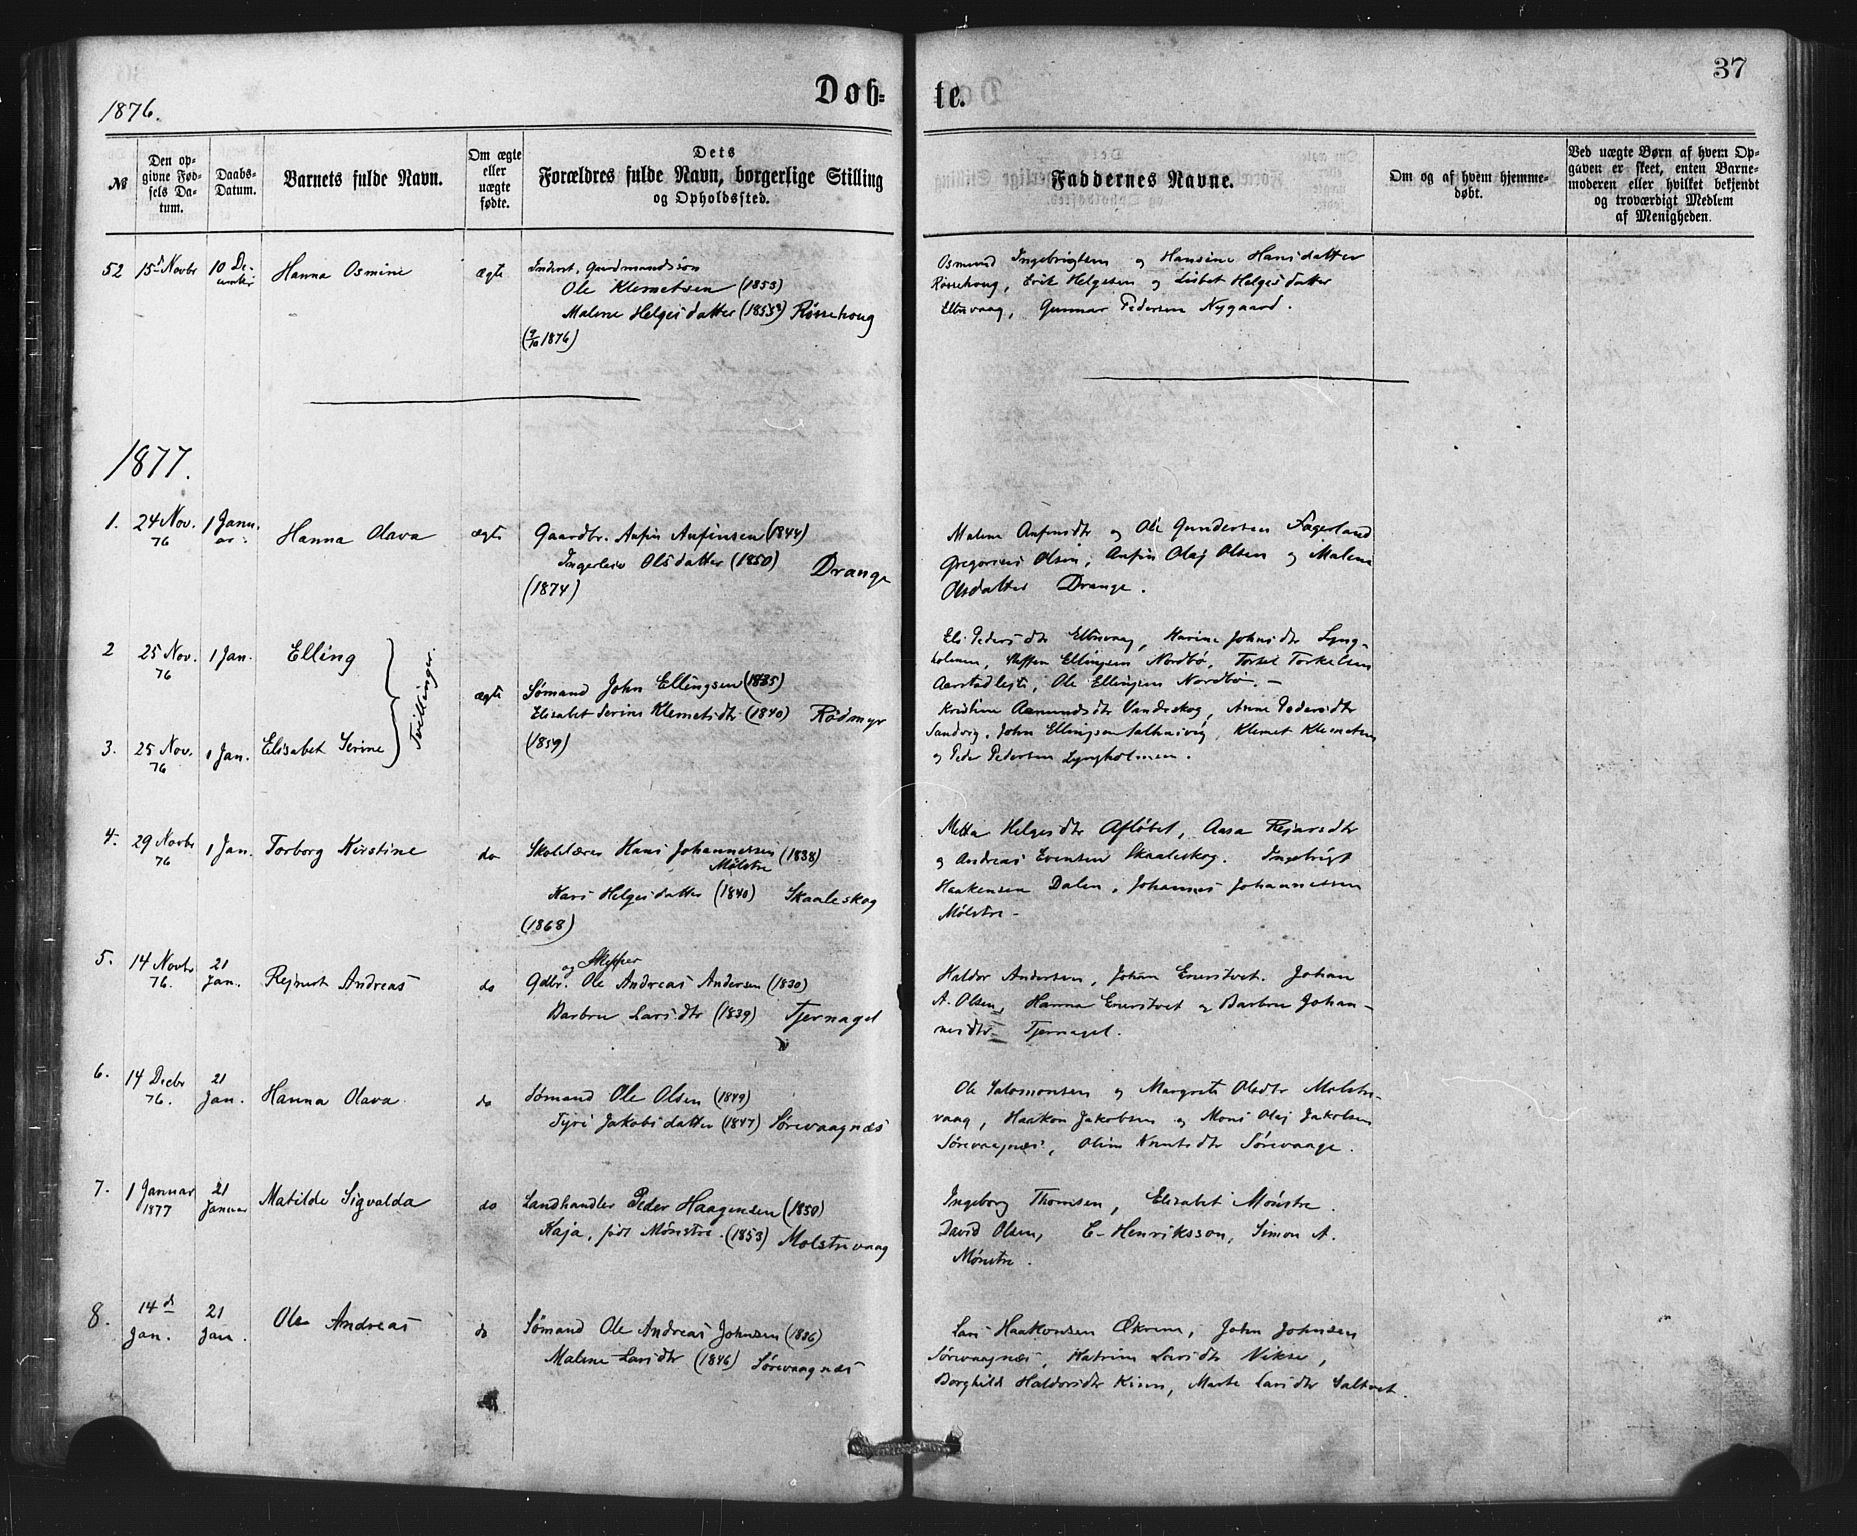 37
1876.
Døb-
te.
№
Den op-
givne Fød-
sels Da-
tum.
Daabs-
Datum.
Barnets fulde Navn.
Om ægte
eller
uægte
fødte.
Dets
Forældres fulde Navn, borgerlige Stilling
og Opholdssted.
Faddernes Navne.
Om og af hvem hjemme-
døbt.
Ved uægte Børn af hvem Op-
gaven er skeet, enten Barne-
moderen eller hvilket bekjendt
og troværdigt Medlem
af Menigheden.
52 15 Novbr 10 De-
cember
Hanna Osmine
ægte
Inderst, Gudmundssøn
Ole Klemetsen (1853)
Malene Helgesdatter (1853) Røssehoug
(9/10 1876)
Osmund Ingebrigtsen og Hansine Hansdatter
Røssehoug, Erik Helgesen og Lisbet Helgesdatter
Elbuvaag, Gunnar Pedersen Nygaard.
1877.
1. 24 Nov. 76 1 Janu-
ar
Hanna Olava
ægte
Gaardbr. Anfin Anfinsen (1844)
Ingerleiv Olsdatter (1850) Drange
(1874)
Malene Anfinsdtr og Ole Gundersen Fagerland
Gregorius Olsen, Anfin Olaj Olsen og Malene
Olsdatter Drange.
2 25 Nov. 76 1 Jan.
Elling
Tvillinger.
3. 25 Nov. 76 1 Jan.
Elisabet Serine
ægte
Sømand John Ellingsen (1835)
Elisabet Serine Klemetsdtr (1840) Rødmyr
(1859)
Els. Pedersdtr Elbuvaag, Karine Johnsdtr Lyng-
holmen, Steffen Ellingsen Nordbø, Torsel Torkelsen
Aarstadleite, Ole Ellingsen Nordbø. –
Kristine Aamundsdtr Vandaskog, Anne Pedersdtr
Sandvig, John Ellingsen Salthaivig, Klemet Klemetsen
og Peder Pedersen Lyngholmen.
4. 29 Novbr 76 1 Jan.
Torborg Kirstine
do
Skolelærer Hans Johannessen (1838)
Mølstre
Kari Helgesdatter (1840) Skaaleskog
(1868)
Metta Helgesdtr Afløbet, Aasa Rejarsdtr
og Andreas Evensen Skaaleskog. Ingebrigt
Haakensen Dalen, Johannes Johannessen
Mølstre –
5. 14 Novbr 76. 21 Jan.
Rejnert Andreas
do
og Skipper
Gdbr. Ole Andreas Andersen (1830)
Barbru Larsdtr (1839) Tjernagel
Haldor Andersen, Johan Enerstvet. Johan
A. Olsen, Hanna Enerstvet og Barbru Johan-
nesdtr Tjernagel.
6. 14 Decbr 76. 21 Jan.
Hanna Olava
do
Sømand Ole Olsen (1849)
Tyri Jakobsdatter (1847) Sørevaagnæs
Ole Salomonsen og Margrete Olsdtr Molstre-
vaag, Haakon Jakobsen og Mons Olaj Jakobsen
Sørevaagnæs, Oline Knutsdtr Sørevaage.
7. 1 Januar 1877 21 Januar
Matilde Sigvalda
do
Landhandler Peder Haagensen (1850)
Kaja, født Mønstre. (1853) Molstrevaag
Ingeborg Thomsen, Elisabet Mønstre.
David Olsen, C. Henriksson, Simon A.
Mønstre.
8. 14d Jan. 21 Jan.
Ole Andreas
do
Sømand Ole Andreas Johnsen (1836)
Malene Larsdtr (1846) Sørevaagnæs
Lars Haakonsen Økrene, John Johnsen
Sørevaagnæs, Katrine Larsdtr Vikse,
Borghild Haldorsdtr Kinn, Marte Larsdtr Saltvet.